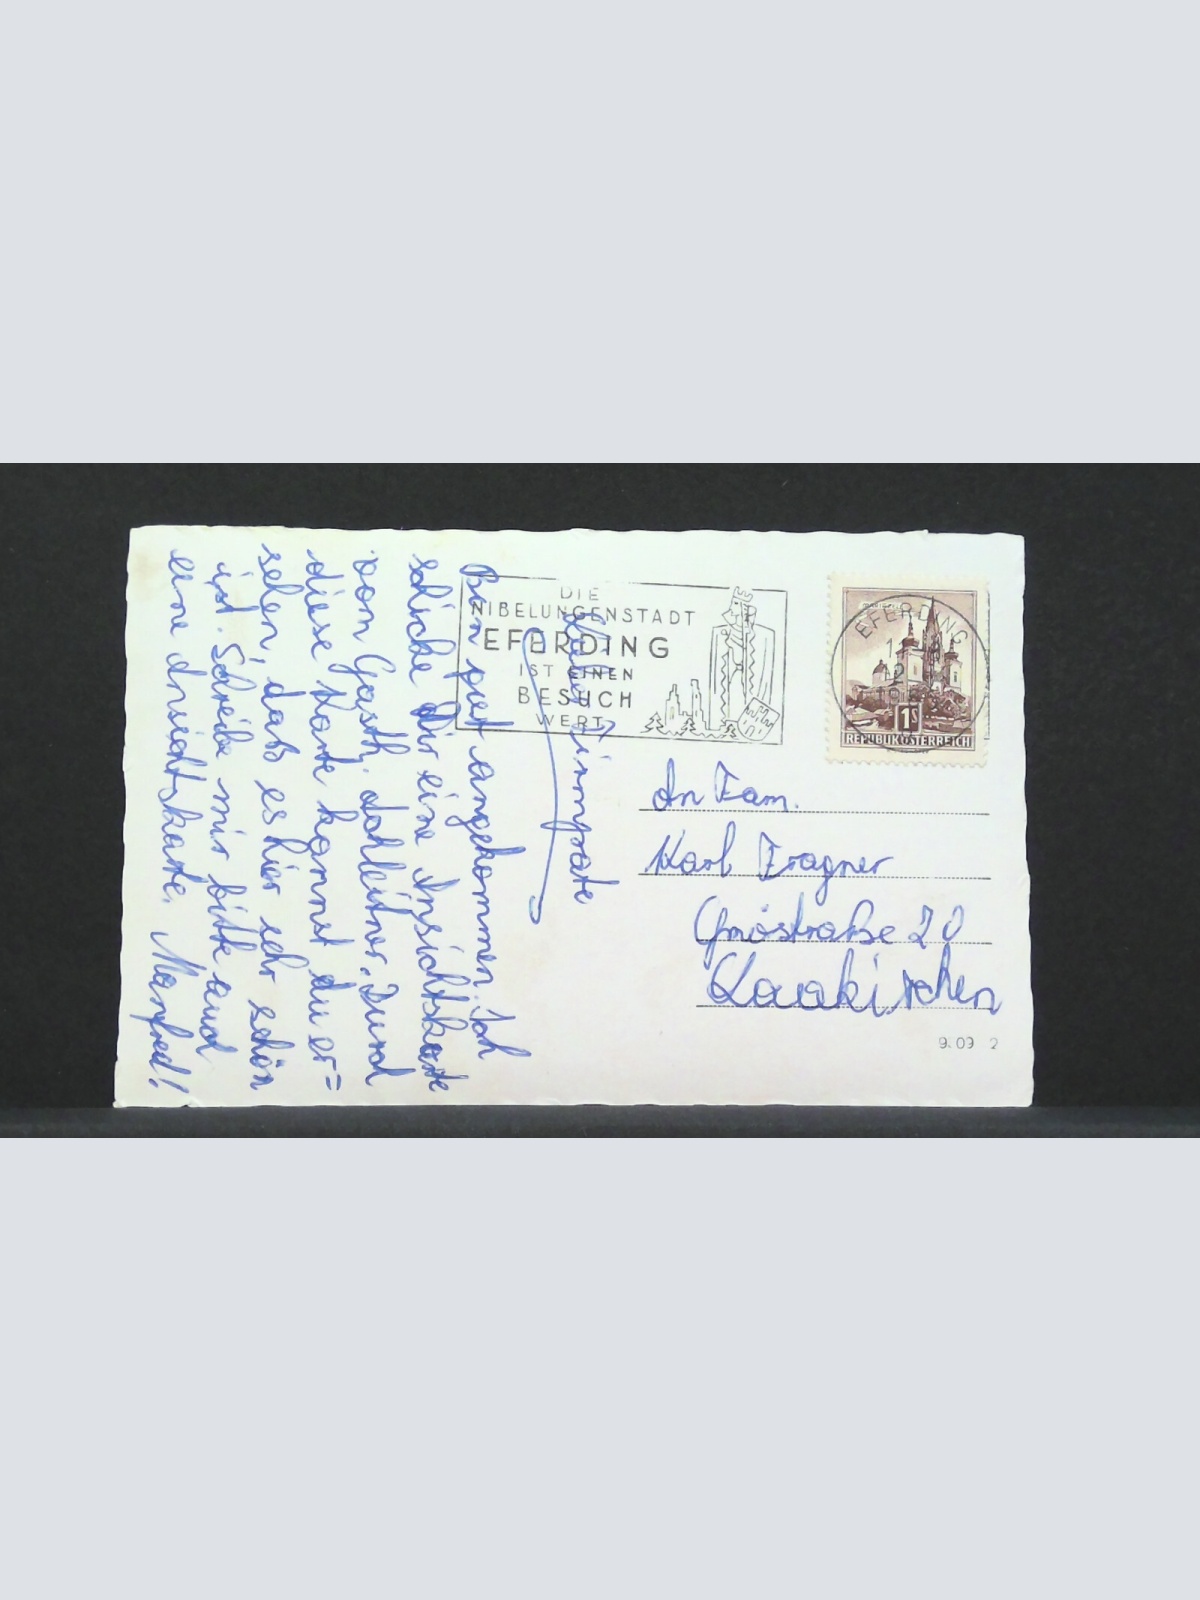 Liebe Firmpate
Bin gut angekommen. Ich
schicke Dir eine Ansichtskarte
vom Gasth. Dahleitner. Durch
diese Karte kannst du er=
sehen, dass es hier sehr schön
ist. Schreibe mir bitte auch
eine Ansichtskarte. Manfred!
DIE
NIBELUNGENSTADT
EFERDING
IST EINEN
BESUCH
WERT
EFERDING
MARIAZELL
1S
REPUBLIK ÖSTERREICH
An Fam.
Karl Fragner
Gmöstraße 20
Laakirchen
9.09 2